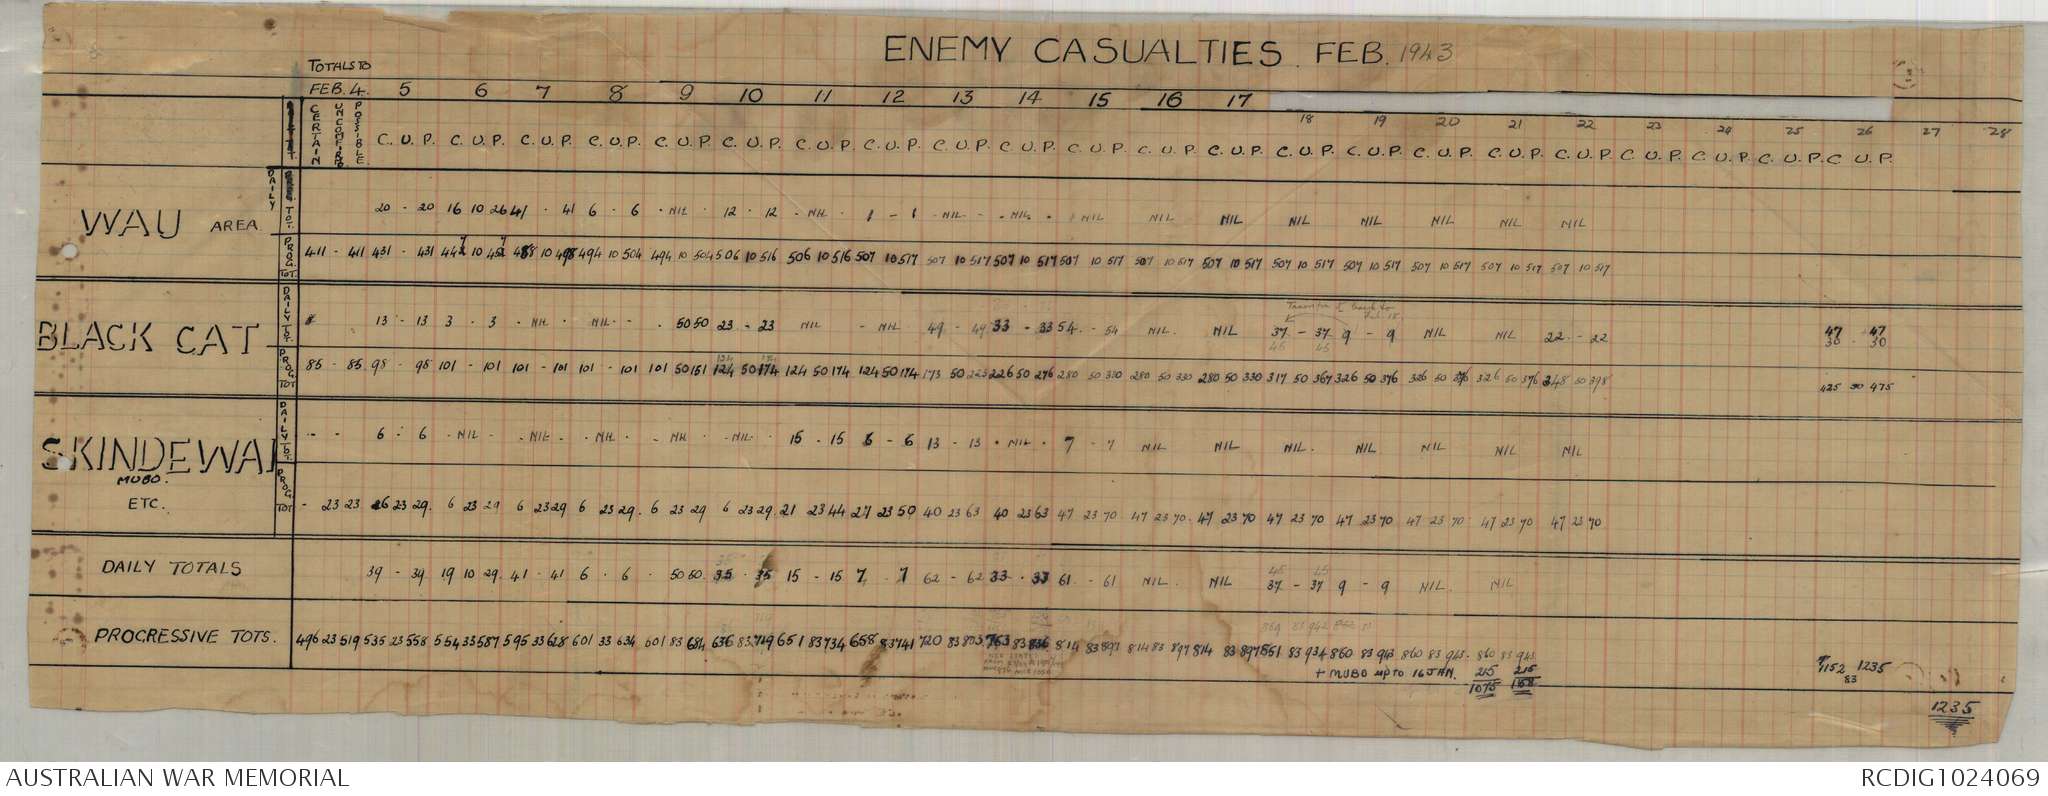 ENEMY CASUALTIES. FEB. 1943
TOTALS TO
FEB. 4. 5 6 7 8 9 10 11 12 13 14 15 16 17 18 19 20 21 22 23 24 25 26 27 28
CERTAIN UNCONFIRMD POSSIBLE C. U. P. C. U. P. C. U. P. C. U. P. C. U. P. C. U. P. C. U. P. C. U. P. C. U. P. C. U. P. C. U. P. C. U. P. C. U. P. C. U. P. C. U. P. C. U. P. C. U. P. C. U. P. C U. P. C U. P. C. U. P. C U. P.
WAU AREA
DAILY TOT. 20 - 20 16 10 26 41 - 41 6 - 6 - NIL - 12 - 12 - NIL - 1 - 1 - NIL - - NIL - NIL NIL NIL NIL NIL NIL NIL NIL
PROG. TOT. 411 - 411 431 - 431 447 10 457 488 10 498 494 10 504 494 10 504 506 10 516 506 10 516 507 10 517 507 10 517 507 10 517 507 10 517 507 10 517 507 10 517 507 10 517 507 10 517 507 10 517 507 10 517 507 10 517
BLACK CAT
DAILY TOT. 13 - 13 3 - 3 - NIL - NIL - - 50 50 23 - 23 NIL - NIL 49 - 49 33 - 33 54 - 54 NIL NIL 37 - 37 9 - 9 NIL NIL 22 - 22 47 - 47
45 45 30 - 30
124 174
PROG. TOT 85 - 85 98 - 98 101 - 101 101 - 101 101 - 101 101 50 151 124 50 174 124 50 174 124 50 174 173 50 223 226 50 276 280 50 330 280 50 330 280 50 330 317 50 367 326 50 376 326 50 376 326 50 376 348 50 398 425 50 475
SKINDEWAI
MUBO.
ETC.
DAILY TOT. - - 6 - 6 - NIL - - NIL - - NIL - - NIL - NIL - 15 - 15 6 - 6 13 - 13 - NIL - 7 - 7 NIL NIL NIL. NIL NIL NIL NIL
PROG. TOT - 23 23 6 23 29. 6 23 29 6 23 29 6 23 29. 6 23 29 6 23 29. 21 23 44 27 23 50 40 23 63 40 23 63 47 23 70 47 23 70. 47 23 70 47 23 70 47 23 70 47 23 70 47 23 70 47 23 70
DAILY TOTALS 39 - 39 19 10 29. 41 - 41 6 - 6 - 50 50. 35 - 35 15 - 15 7 - 7 62 - 62 33 - 33 61 - 61 NIL. NIL 37 - 37 9 - 9 NIL. NIL
45 45
PROGRESSIVE TOTS. 496 23 519 535 23 558 554 33 587 595 33 628 601 33 634 601 83 684 636 83 719 651 83 734 658 83 741 720 83 803 753 83 836 814 83 897 814 83 897 814 83 897 851 83 934 860 83 943 860 83 943. 860 83 943
+ MUBO up to 16 JAN. 215 215
1075 1158
1152 1235
83
1235
AUSTRALIAN WAR MEMORIAL
RCDIG1024069